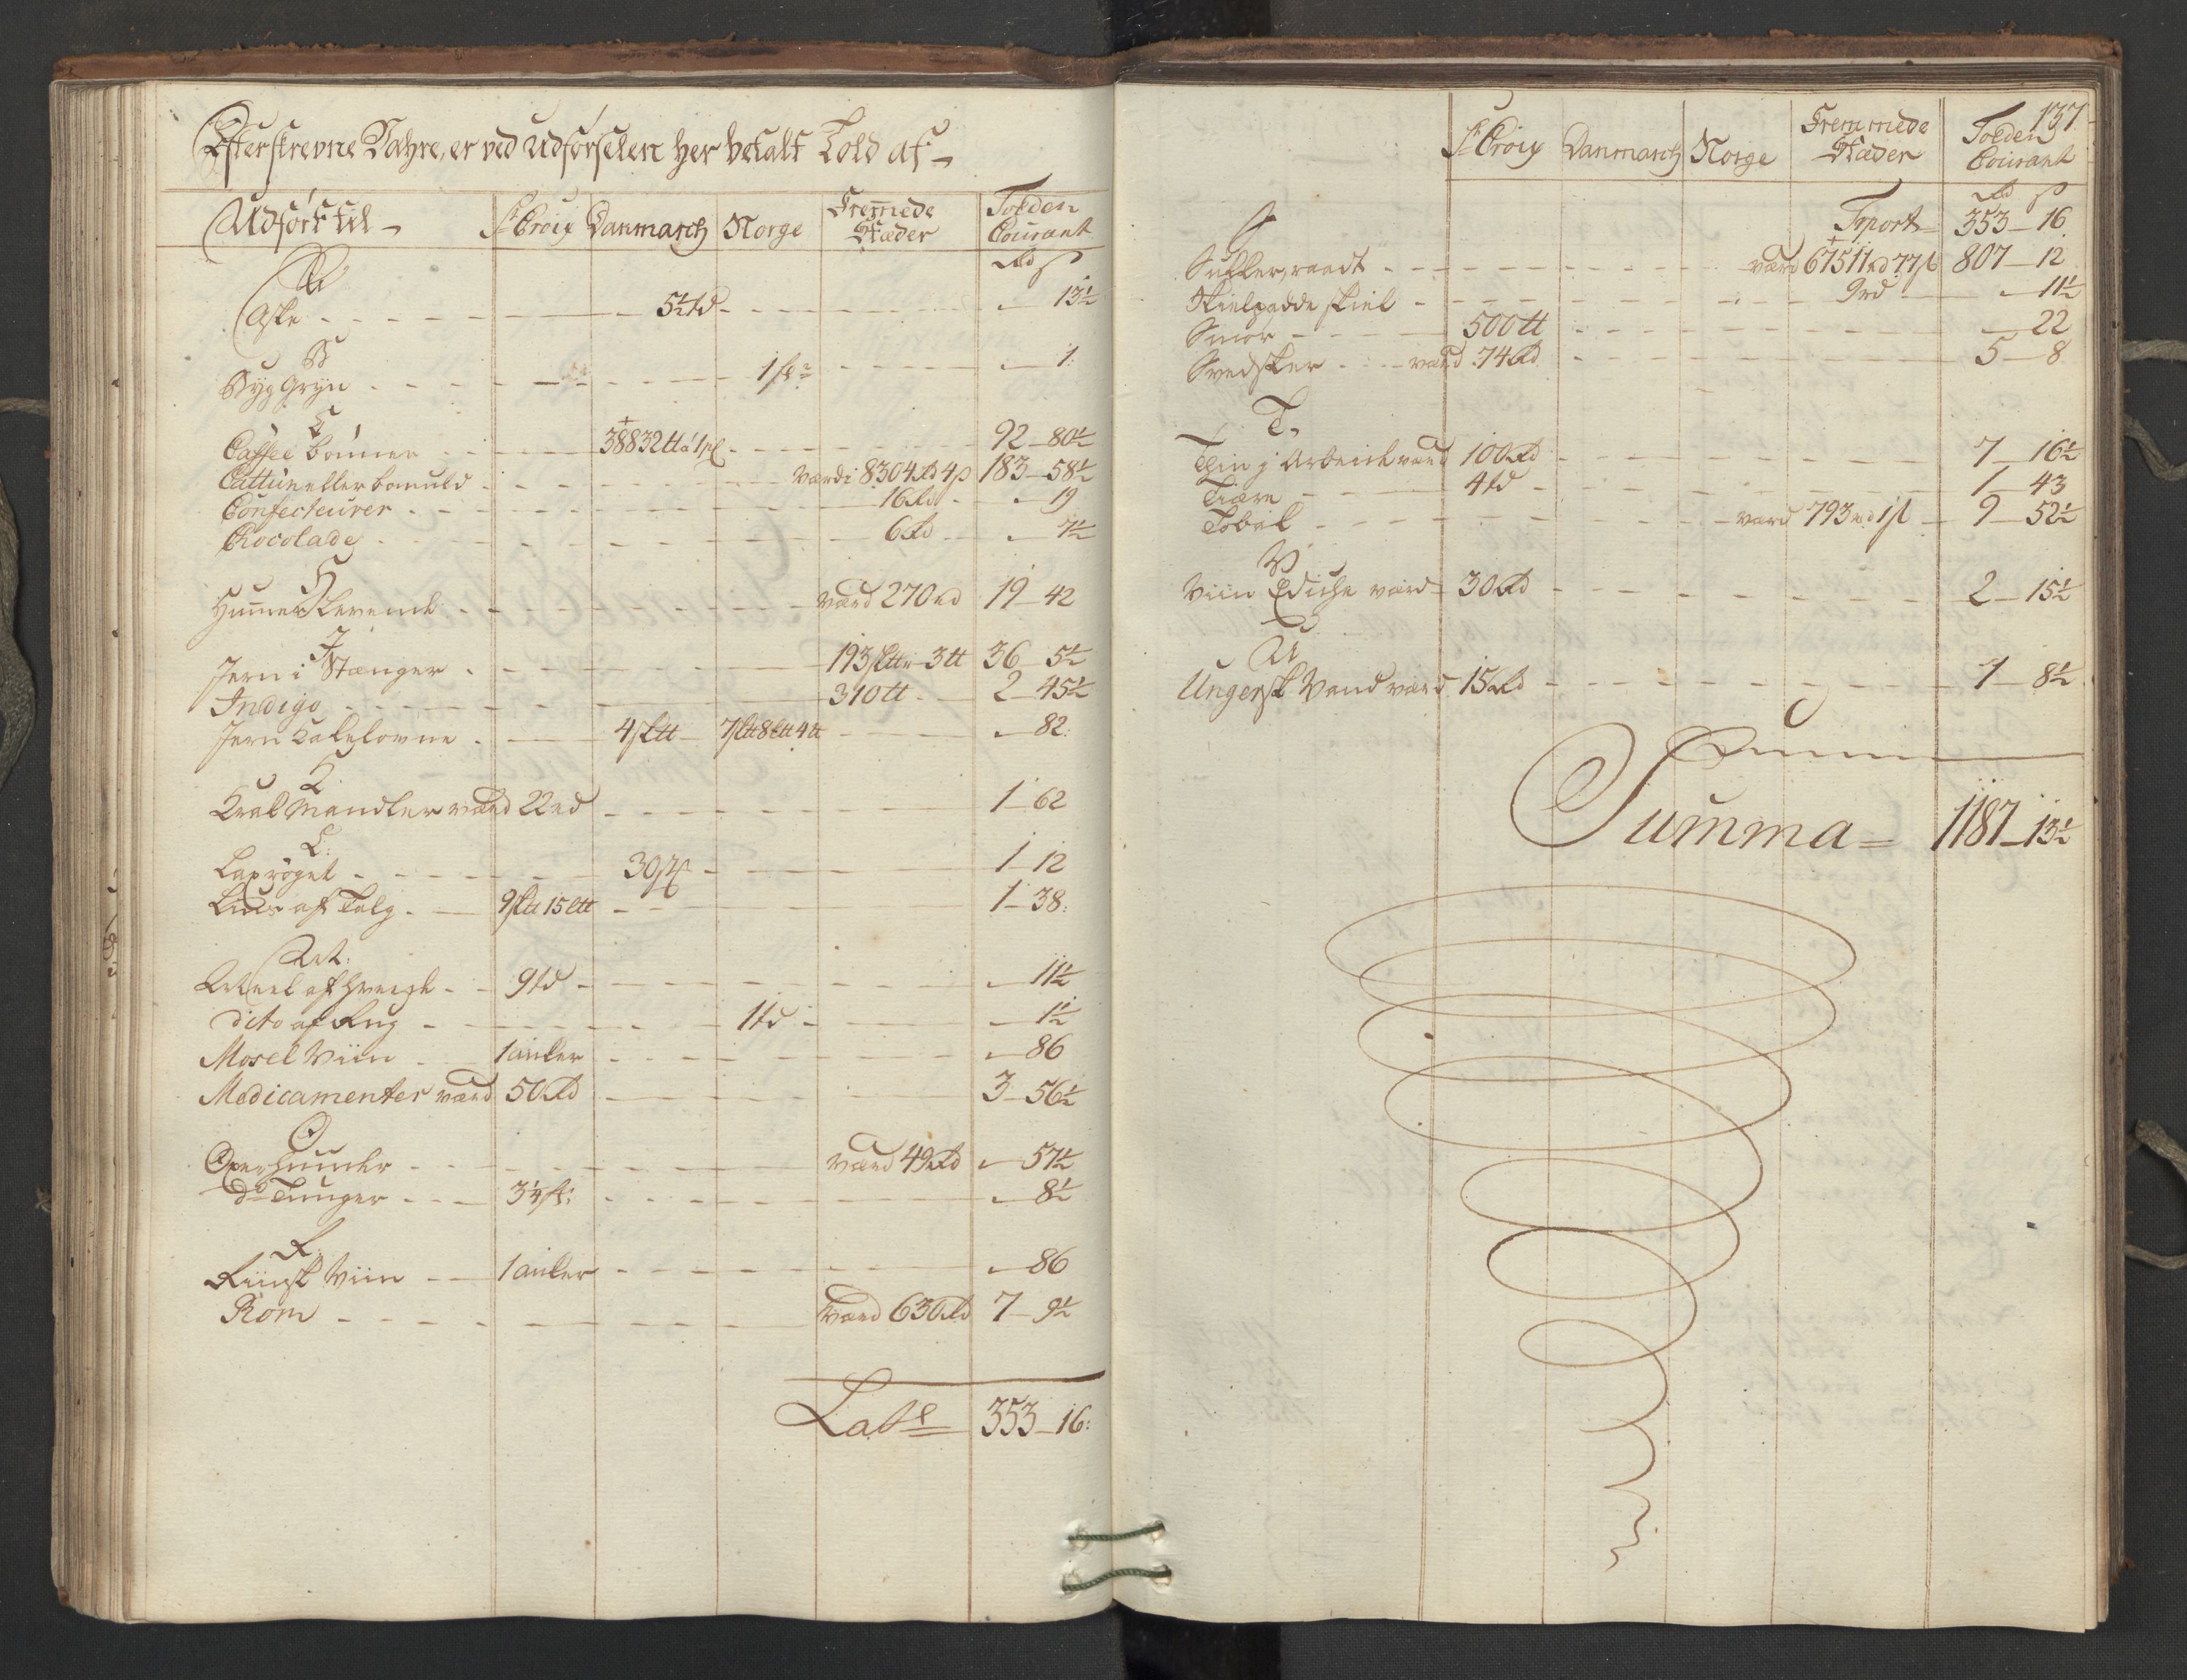 Efterskrevne Vahre, er ved Udförselen her betalt Told af
Udfört til St Croix Danmarch Norge Fremmede Stæder Tolden Courant
Rd ß
A
Aske 5½ td 13½
B
Byg Gryn 1 1
C
Caffee bönner 38832 tt 92 80½
Cattun eller bomuld værdi 8304 Rd 4 ß 183 58½
Confecturer 16 Rd 19
Chocolade 6 Rd 7½
H
Hummer levende værd 270 rd 19 42
J
Jern i Stænger 193 sktt 3 tt 36 5½
Indigo 310 tt 2 45½
Jern Kakelovne 4 sktt 7 sktt 8 ltt 4 tt 82
K
Krak Mandler værd 22 rd 1 62
L
Lax röget 30 1 12
Lius af Talg 9 sktt 15 ltt 1 38
M
Meel af hvede 9 td 11½
dito af Rug 1 td 1½
Mosel Viin 1 anker 86
Medicamenter værd 50 Rd 3 56½
O
Oxerhuuder værd 49 Rd 57½
do Tunger 8½
R
Riinsk Viin 1 anker 86
Rom værd 630 Rd 7 9½
Late 353 16
137
St Croix Danmarch Norge Fremmede Stæder Tolden Courant
Rd ß
Trport 353 16
S
Sukker, raadt værd 67511 rd 77 ß 807 12
Skielpadde skiel 9 rd 11½
Smör 500 tt 22
Svedsker værd 74 Rd 5 8
T
Thin j Arbeide værd 100 Rd 7 16½
Tiære 4 td 1 43
Tobak værd 793 rd 1 ß 9 52½
V
Viin Ediche værd 30 Rd 2 15½
U
Ungersk Vand værd 15 Rd 1 8½
Summa 1187 13½